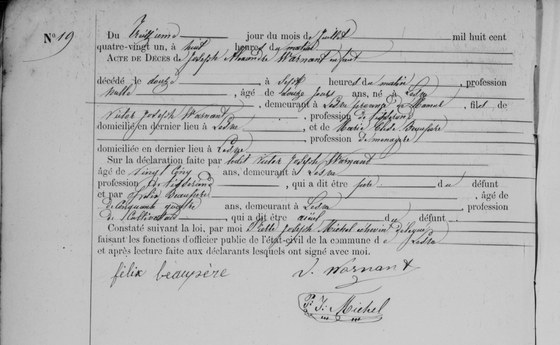 N° 19
Du Treizième jour du mois de juillet mil huit cent
quatre-vingt un, à huit heures du matin
ACTE DE DÉCÈS de Joseph Alexandre Warnant
décédé le douze à Sept heures du matin, profession
nulle, âgé de douze jours ans, né à
, demeurant à province de Namur, fils de
Victor Joseph Warnant, profession de
domicilié en dernier lieu à et de Marie
profession de ménagère
domiciliée en dernier lieu à
Sur la déclaration faite par ledit Victor Joseph Warnant
âgé de Vingt Cinq ans, demeurant à
profession de, qui a dit être père du défunt
et par, âgé
de Cinquante quatre ans, demeurant à, profession
de, qui a dit être aïeul du défunt
Constaté suivant la loi, par moi Joseph Michel échevin délégué
faisant les fonctions d'officier public de l'état-civil de la commune de
et après lecture faite aux déclarants lesquels ont signé avec moi.
félix beaupère
V. Warnant
P: J: Michel